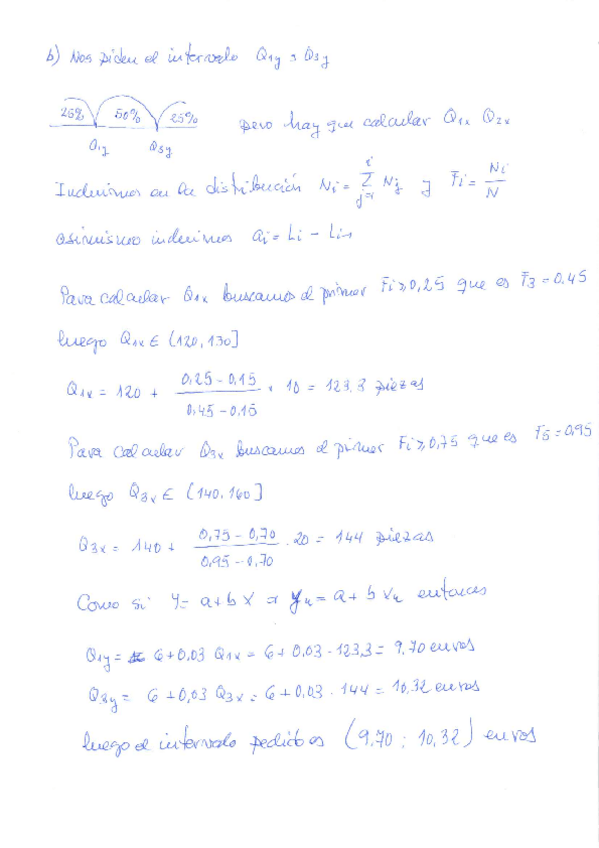 b) Nos piden el intervalo Q1y, Q3y
25% 50% 25%
Q1y Q3y
pero hay que calcular Q1x Q2x
Incluimos en la distribución Ni = Σ Nj y Fi = Ni/N
i
j=1
asimismo incluimos ai = Li - Li-1
Para calcular Q1x buscamos el primer Fi ≥ 0,25 que es F3 = 0,45
luego Q1x ∈ (120, 130]
Q1x = 120 + (0,25 - 0,15)/(0,45 - 0,15) × 10 = 123,3 piezas
Para calcular Q3x buscamos el primer Fi ≥ 0,75 que es F5 = 0,95
luego Q3x ∈ (140, 160]
Q3x = 140 + (0,75 - 0,70)/(0,95 - 0,70) · 20 = 144 piezas
Como si y = a + b x ⇒ yk = a + b xk entonces
Q1y = 6 + 0,03 Q1x = 6 + 0,03 · 123,3 = 9,70 euros
Q3y = 6 + 0,03 Q3x = 6 + 0,03 · 144 = 10,32 euros
luego el intervalo pedido es (9,70 ; 10,32) euros